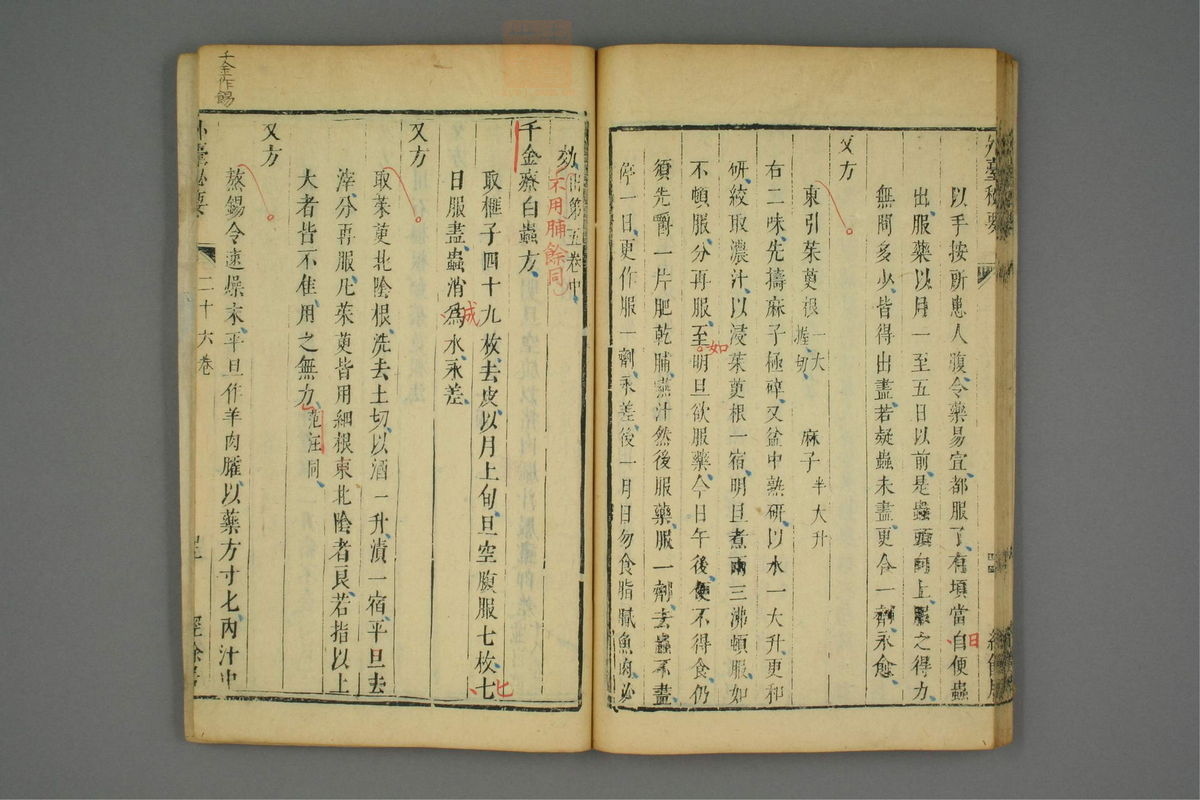 以手按所患人腹令藥易宣都服了有頃當自便蟲
日
出服藥以月一至五日以前是蟲頭向上服之得力
無問多少皆得出盡若疑蟲未盡更合一劑永愈
又方
東引茱萸根一大握切 麻子半大升
右二味先擣麻子極碎又盆中熟研以水一大升更和
研絞取濃汁以浸茱萸根一宿明旦煮兩三沸頓服如
不頓服分再服至明旦欲服藥今日午後便不得食仍
如
須先嚼一片肥乾脯燕汁然後服藥服一劑去蟲不盡
停一日更作服一劑永差後一月日勿食脂膩魚肉必
効出第五卷中
不用脯餘同
千金療白蟲方
取榧子四十九枚去皮以月上旬旦空腹服七枚七
七
日服盡蟲消為水永差
成
又方
取茱萸北陰根洗去土切以酒一升漬一宿平旦去
滓分再服凡茱萸皆用細根東北陰者良若指以上
大者皆不佳用之無力范汪同
又方
熬錫令速燥末平旦作羊肉臛以藥方寸匕內汁中
千金作餳
外臺秘要
二十六卷
經餘居